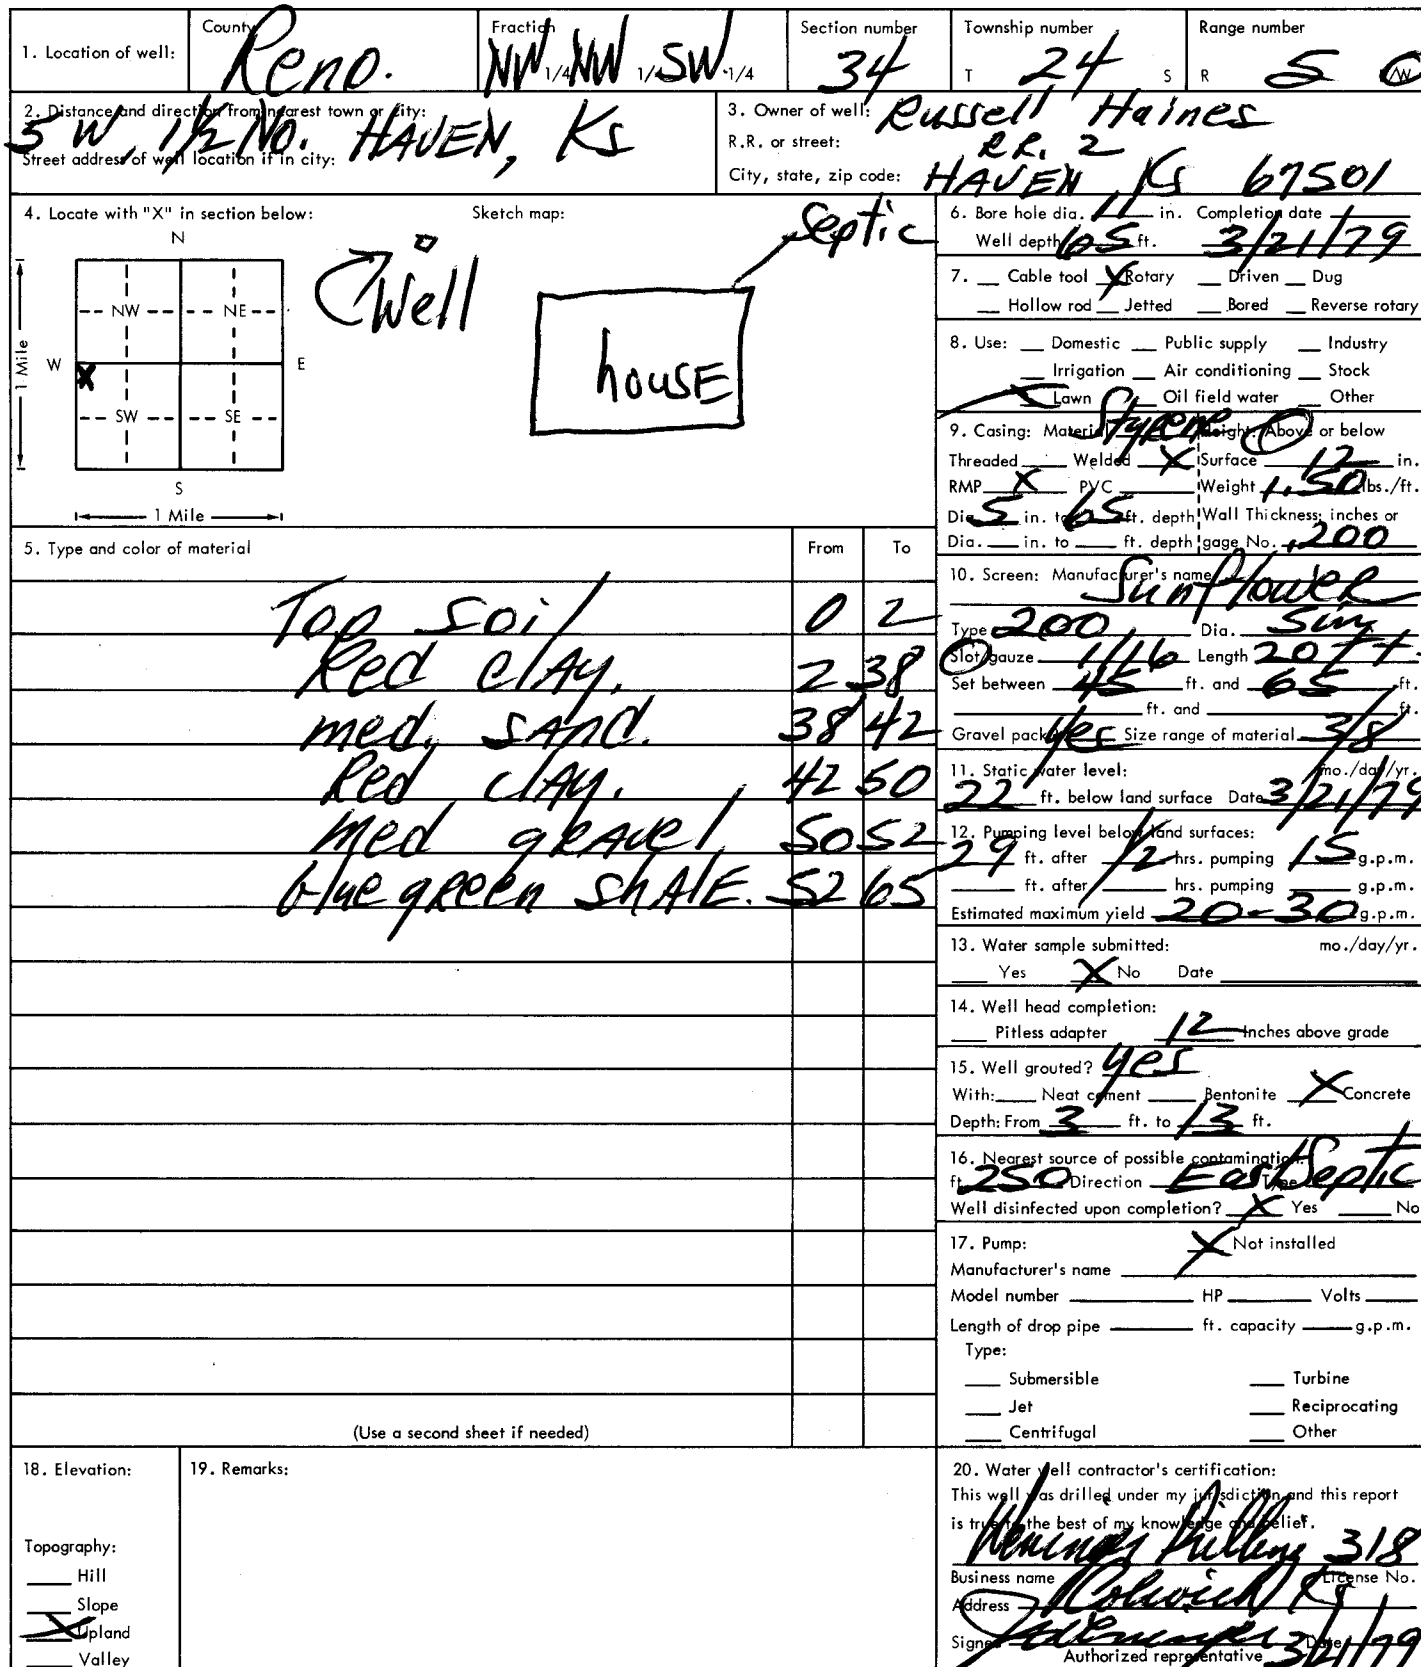 1. Location of well: County Reno. Fraction NW 1/4 NW 1/4 SW 1/4 Section number 34 Township number T 24 S Range number R 5 W
2. Distance and direction from nearest town or city: 5 W, 1 1/2 No. HAVEN, Ks
Street address of well location if in city:
3. Owner of well: Russell Haines
R.R. or street: R.R. 2
City, state, zip code: HAVEN Ks 67501
4. Locate with "X" in section below:
N
NW NE
W X E
SW SE
S
1 Mile
1 Mile
Sketch map:
Well
house
Septic
5. Type and color of material From To
Top Soil 0 2
Red clAy. 2 38
med. SAnd. 38 42
Red clAy. 42 50
med gRAvel 50 52
blue gReen ShAlE. 52 65
(Use a second sheet if needed)
6. Bore hole dia. 11 in. Completion date
Well depth 65 ft. 3/21/79
7. Cable tool X Rotary Driven Dug
Hollow rod Jetted Bored Reverse rotary
8. Use: Domestic Public supply Industry
Irrigation Air conditioning Stock
X Lawn Oil field water Other
9. Casing: Material Styrene Height: Above or below
Threaded Welded X Surface 12 in.
RMP X PVC Weight 1.50 lbs./ft.
Dia. 5 in. to 65 ft. depth Wall Thickness: inches or
Dia. in. to ft. depth gage No. .200
10. Screen: Manufacturer's name
Sunflower
Type 200 Dia. 5in
Slot/gauze 1/16 Length 20 ft.
Set between 45 ft. and 65 ft.
ft. and ft.
Gravel pack yes Size range of material 3/8
11. Static water level: mo./day/yr.
22 ft. below land surface Date 3/21/79
12. Pumping level below land surfaces:
29 ft. after 1/2 hrs. pumping 15 g.p.m.
ft. after hrs. pumping g.p.m.
Estimated maximum yield 20-30 g.p.m.
13. Water sample submitted: mo./day/yr.
Yes X No Date
14. Well head completion:
Pitless adapter 12 Inches above grade
15. Well grouted? yes
With: Neat cement Bentonite X Concrete
Depth: From 3 ft. to 13 ft.
16. Nearest source of possible contamination:
ft. 250 Direction East Type Septic
Well disinfected upon completion? X Yes No
17. Pump: X Not installed
Manufacturer's name
Model number HP Volts
Length of drop pipe ft. capacity g.p.m.
Type:
Submersible Turbine
Jet Reciprocating
Centrifugal Other
18. Elevation:
Topography:
Hill
Slope
X Upland
Valley
19. Remarks:
20. Water well contractor's certification:
This well was drilled under my jurisdiction and this report
is true to the best of my knowledge and belief.
Drilling 318
Business name License No.
Address Colwich Ks
Signed Date 3/21/79
Authorized representative